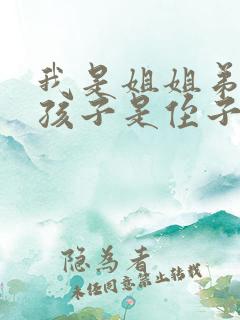 我是姐姐弟
孩子是侄子
隐为者
未经同意禁止转载